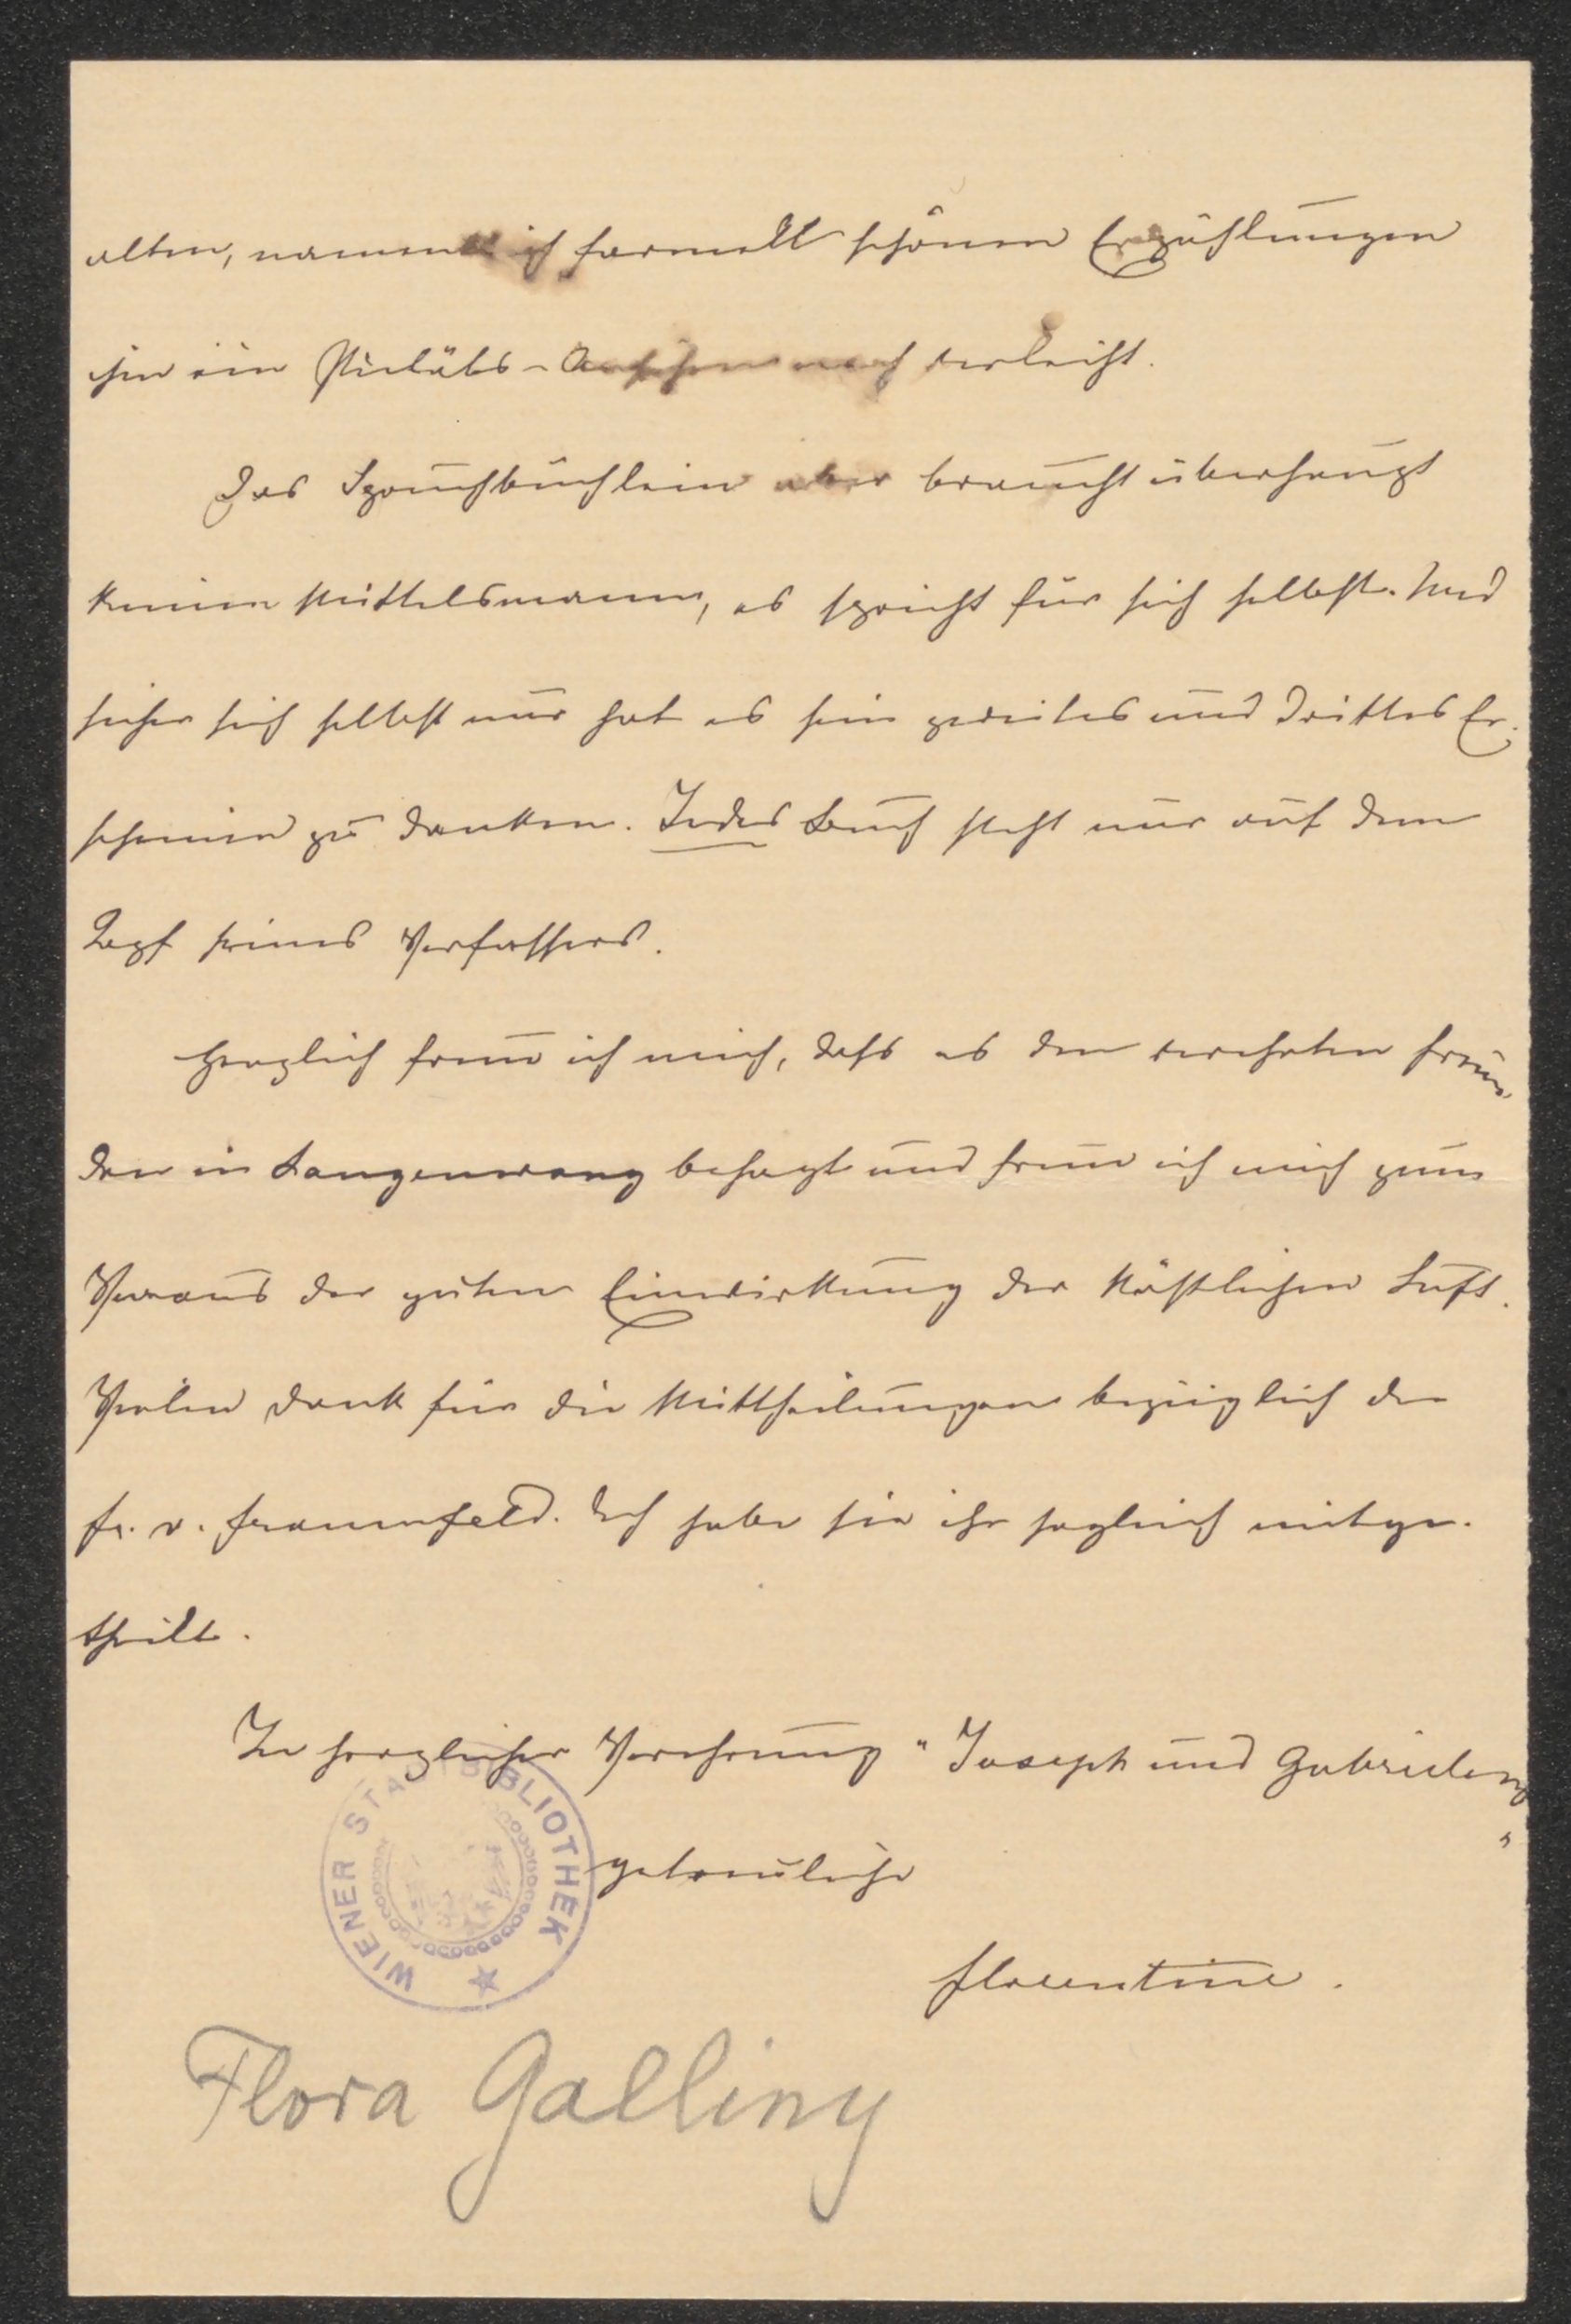 alten, namentlich formell schönen Erzählungen
ihm ein Pietäts-Ansehen noch verleiht.
Das Spruchbüchlein aber braucht überhaupt
keinen Mittelsmann, es spricht für sich selbst. Und
sicher sich selbst nur hat es sein zweites und drittes Er-
scheinen zu danken. Jedes Buch steht nur auf dem
Kopf seines Verfassers.
Herzlich freue ich mich, dass es den verehrten Freun
den in Langenwang behagt und freue ich mich zum
Voraus der guten Einwirkung der köstlichen Luft.
Vielen Dank für die Mittheilungen bezüglich der
Fr. v. Frauenfeld. Ich habe sie ihr sogleich mitge-
theilt.
In herzlicher Verehrung "Joseph und Gabrielens"
getreuliche
Florentine.
WIENER STADTBIBLIOTHEK
Flora Galliny